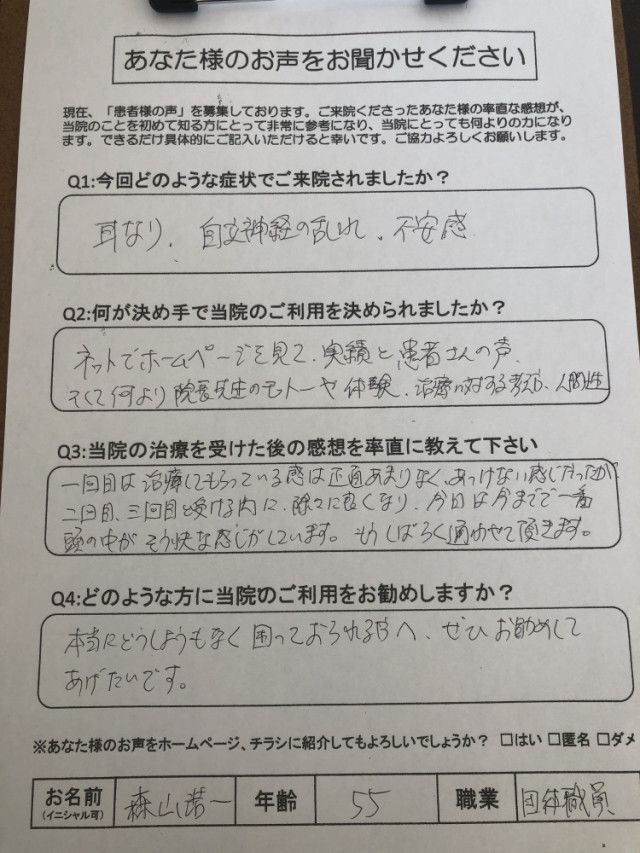 あなた様のお声をお聞かせください
現在、「患者様の声」を募集しております。ご来院くださったあなた様の率直な感想が、
当院のことを初めて知る方にとって非常に参考になり、当院にとっても何よりの力になり
ます。できるだけ具体的にご記入いただけると幸いです。ご協力よろしくお願いします。
Q1:今回どのような症状でご来院されましたか?
耳なり、自立神経の乱れ、不安感
Q2:何が決め手で当院のご利用を決められましたか?
ネットでホームページを見て、実績と患者さんの声、
そして何より院長先生のモットーや体験、治療に対する考え方、人間性
Q3:当院の治療を受けた後の感想を率直に教えて下さい
一回目は治療してもらっている感は正直あまりなく、あっけない感じだったが
二回目、三回目と受ける内に、除々に良くなり、今日は今までで一番
頭の中がそう快な感じがしています。もうしばらく通わせて頂きます。
Q4:どのような方に当院のご利用をお勧めしますか?
本当にどうしようもなく困っておられる方へ、ぜひお勧めして
あげたいです。
※あなた様のお声をホームページ、チラシに紹介してもよろしいでしょうか? □はい □匿名 □ダメ
お名前 森山 一 年齢 55 職業 団体職員
(イニシャル可)